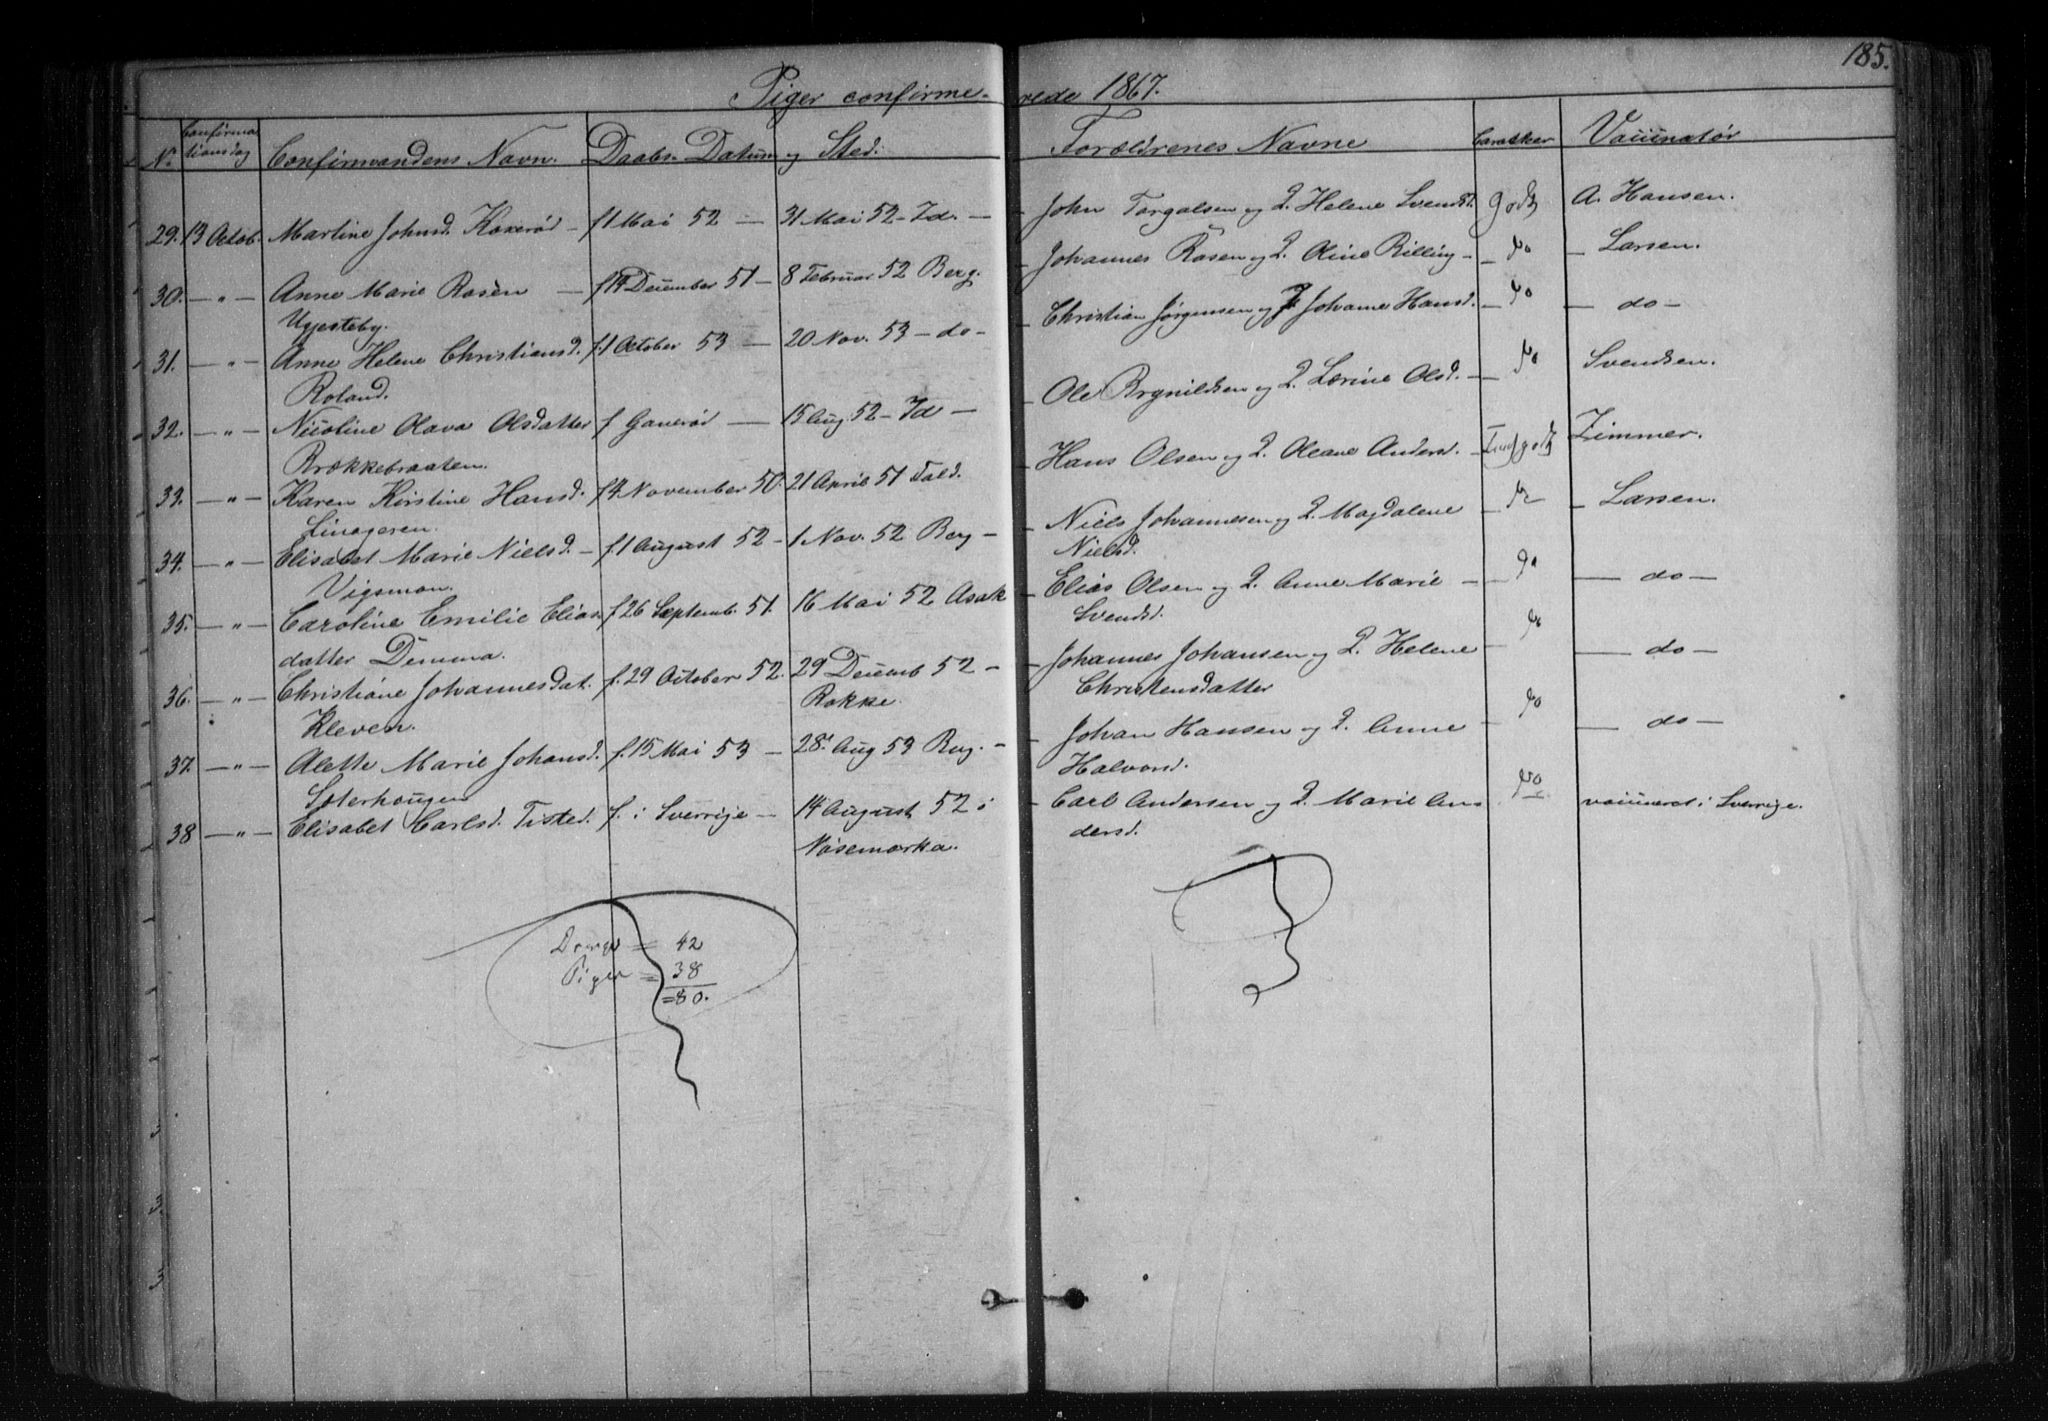 185.
Piger confirme- rede 1867.
No Confirmationsdag Confirmandens Navn. Daabs Datum og Sted. Forældrenes Navne Carakter Vaccinatør
29. 13 Octob. Martine Johnsd. Kokerød - f 1 Mai 52 — 31 Mai 52 - Id. — John Torgalsen og Q. Helene Svendsd. godt A. Hansen.
30. — „ — Anne Marie Rosèn — f 14 December 51 — 8 Februar 52 Berg. — Johannes Rosen og Q. Oline Rilling — do — Larsen.
Ugjesteby.
31. — „ — Anne Helene Christiansd. f. 1 October 53 — 20 Nov. 53 — do — Christian Jørgensen og Johanne Hansd. — do — do —
Roland.
32. — „ — Nicoline Olava Olsdatter f Ganerød — 15 Aug. 52 — Id — Ole Brynildsen og Q. Lorine Olsd. — do Svendsen.
Brækkebraaten.
33. — „ — Karen Kirstine Hansd. f 4 November 50. 21 April 51 Id. — Hans Olsen og Q. Oleane Andersd. — godt Zimmer.
34. — „ — Elisabet Marie Nielsd. — f. 1 August 52 — 1 Nov. 52 Berg — Niels Johannesen og Q. Magdalene — do — Larsen.
Vigsmon. Nielsd.
35. — „ — Caroline Emilie Elias f 26 Septemb. 51. 16 Mai 52 Asak Elias Olsen og Q. Anne Marie — do — do —
datter Demma. Svendsd.
36. — „ — Christiane Johannesdat. f. 29 October 52. 29 Decemb 52 — Johannes Johansen og Q. Helene — do — do —
Kleven. Rokke. Christensdatter
37. — „ — Alette Marie Johansd. f. 15 Mai 53 — 28 Aug 53 Berg. — Johan Hansen og Q. Anne — do — do —
Soterhougen Halvorsd.
38 — „ — Elisabet Carlsd. Tisted. f. i Sverrige — 14 August 52 i — Carl Andersen og Q. Marie An do vaccineret i Sverrige.
Nøsemarka. dersd.
Drenge = 42
Piger = 38
= 80.